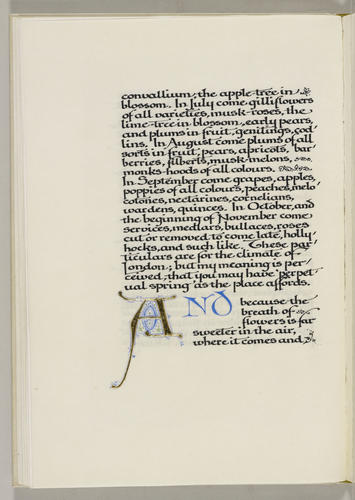 convallium; the apple-tree in
blossom. In July come gilliflowers
of all varieties, musk-roses, the
lime-tree in blossom, early pears,
and plums in fruit, genitings, cod
lins. In August come plums of all
sorts in fruit, pears, apricots, bar
berries, filberts, musk-melons,
monks-hoods of all colours.
In September come grapes, apples,
poppies of all colours, peaches, melo
cotones, nectarines, cornelians,
wardens, quinces. In October, and
the beginning of November come
services, medlars, bullaces, roses
cut or removed to come late, holly
hocks, and such like. These par
ticulars are for the climate of
London; but my meaning is per
ceived, that you may have 'perpet
ual spring' as the place affords.
AND because the
breath of
flowers is far
sweeter in the air,
where it comes and